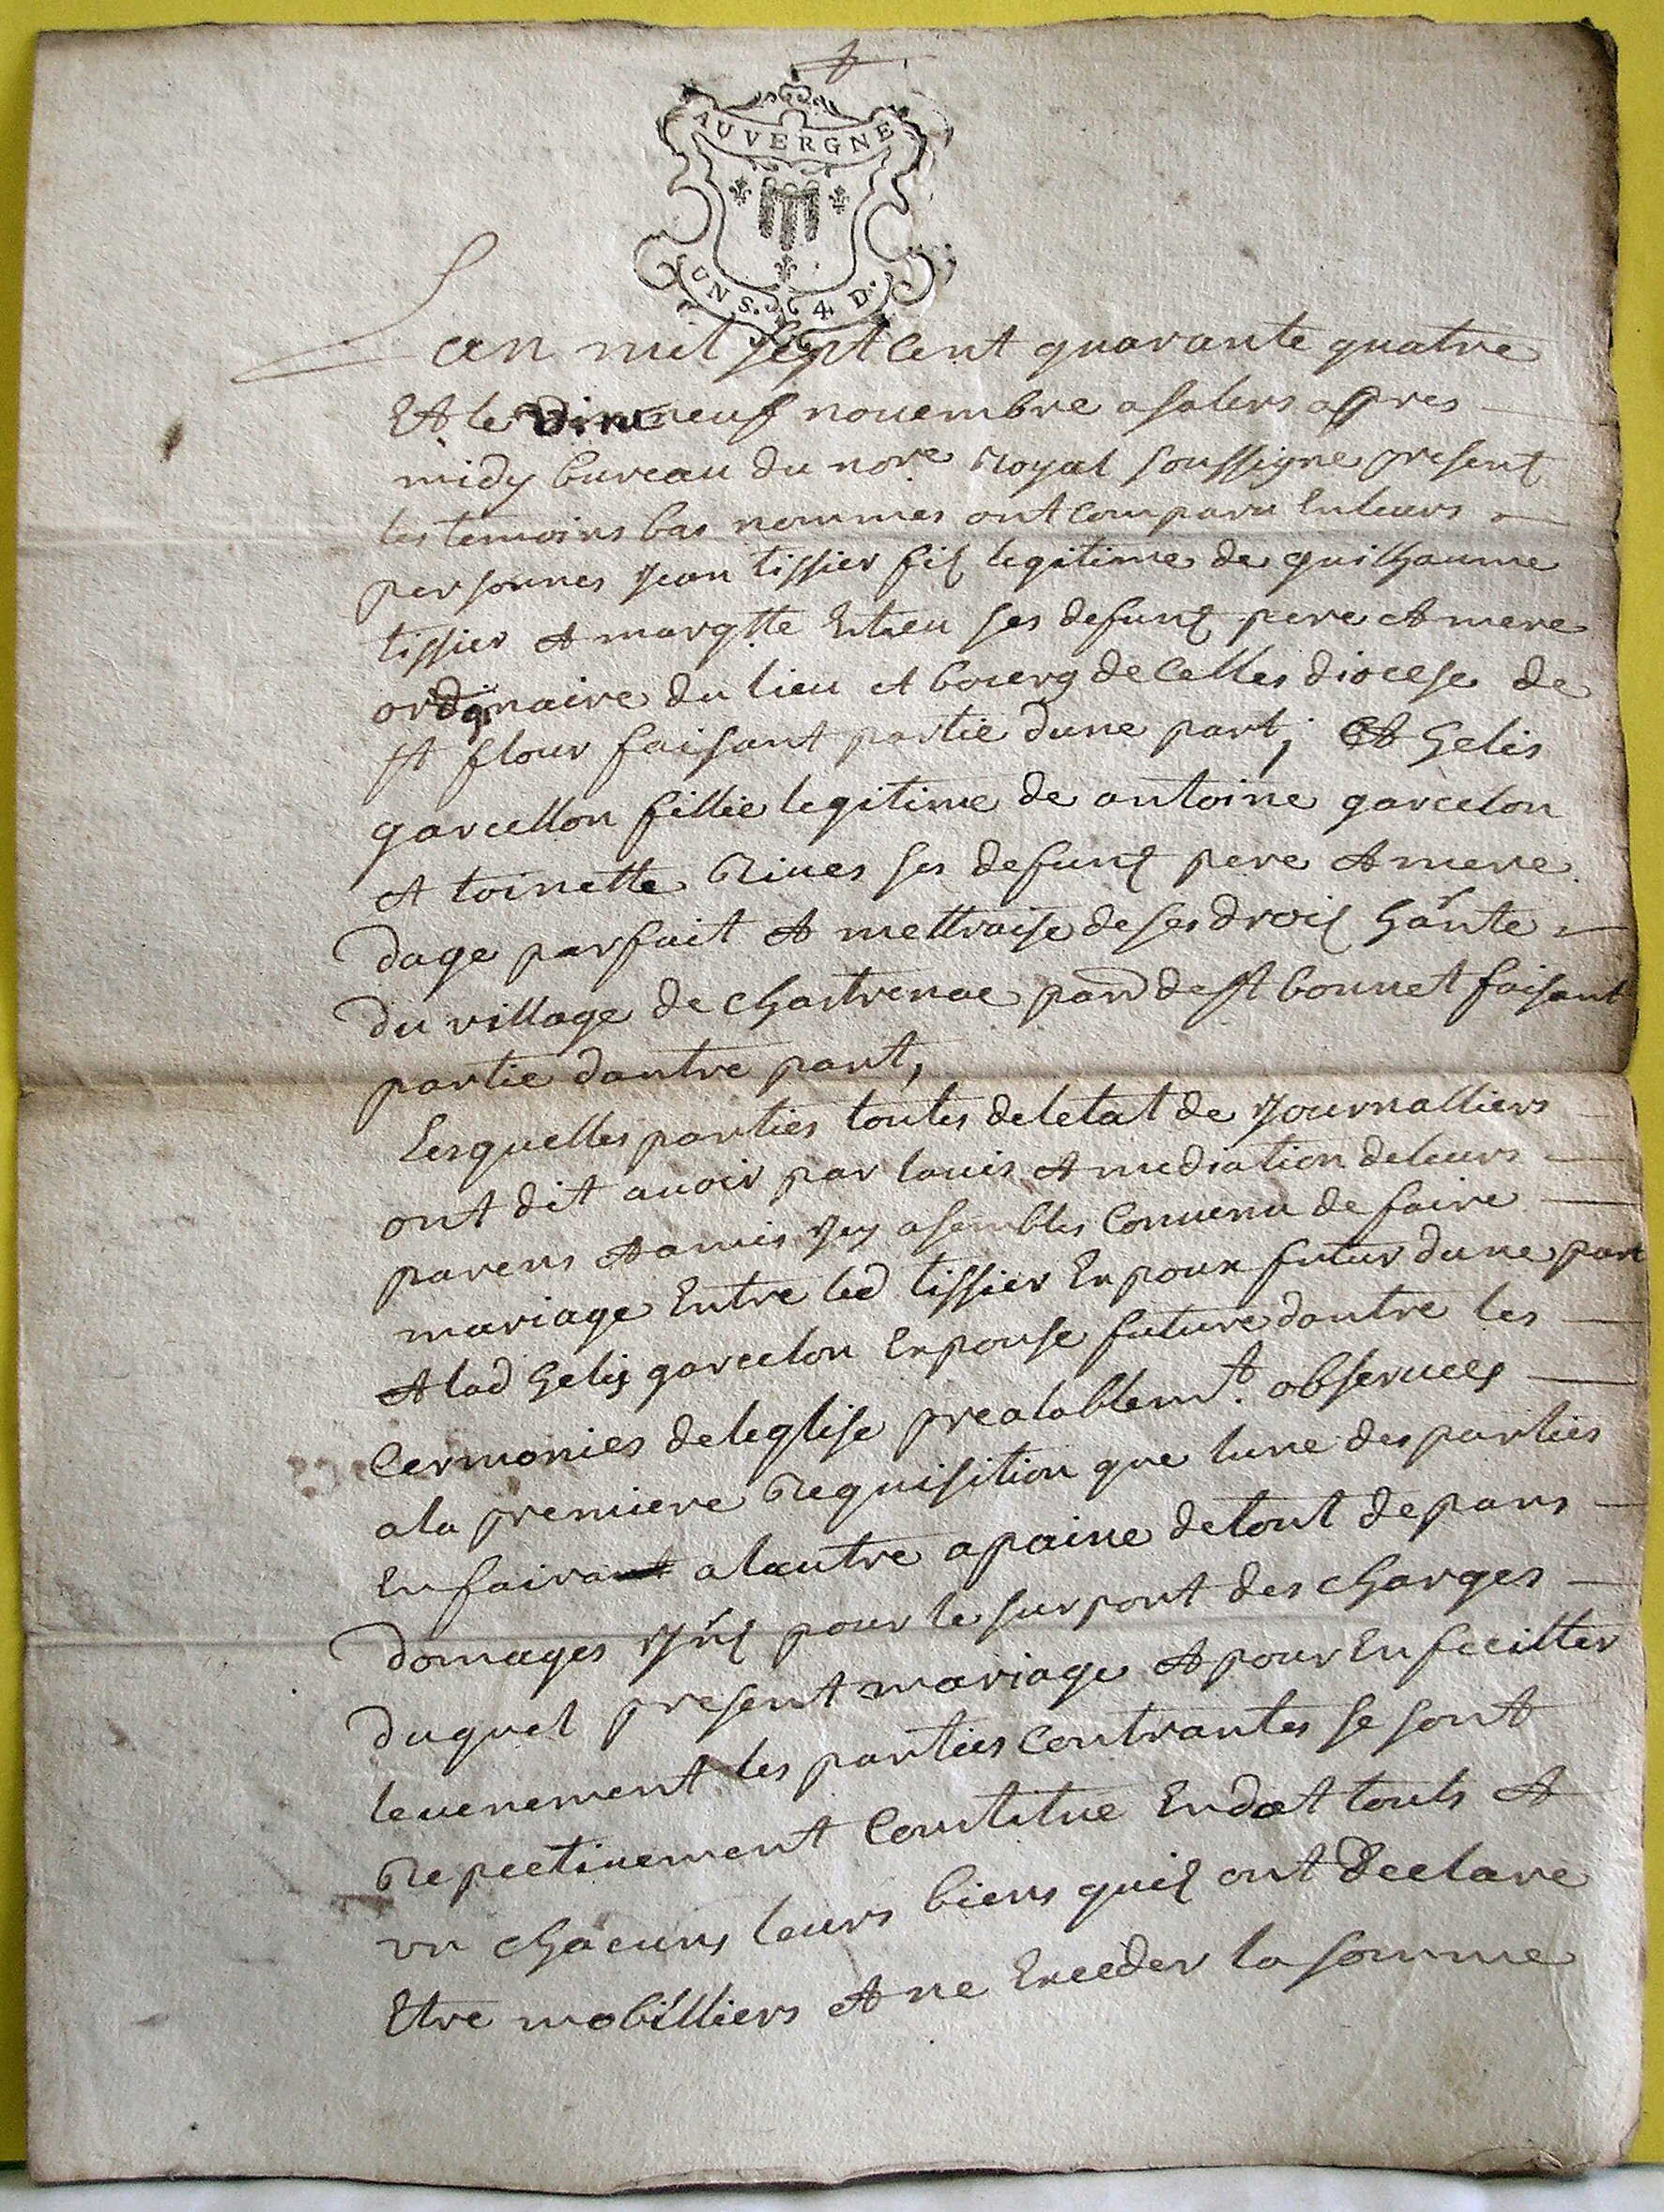 AUVERGNE
UN S. 4 D.
Lan mil sept cent quarante quatre
Et le neuf nouembre a salers apres
midy bureau du nore Royal soussigne present
les temoins bas nommes ont comparu En leurs
personnes Jean tissier fils legitime de guilhaume
tissier et margtte ses defunts pere et mere
ordinaire du lieu et bourg de Celles diocese de
st flour faisant partie dune part; Et helis
garcellon fillie legitime de antoine garcelon
et toinette Riues ses defunts pere et mere
dage parfait et mettraise de ses droits hante
du village de chastrenac parr de st bonnet faisant
partie dautre part,
Lesquelles parties toutes de letat de Journalliers
ont dit auoir par lauis et mediation de leurs
parens et amis Jcy asembles Conuenu de faire
mariage Entre led tissier Enpoux futur dune part
et lad helis garcelon Enpouse future dautre les
Cermonies de leglise prealablemt. obseruees
a la premiere Requisition que lune des parties
En faira a lautre a paine de tout depans
domages Jnts pour le surport des charges
duquel present mariage et pour En feciliter
leuenement les parties Contrantes se sont
Repectiuement Constitue En dot touts et
vn chacuns leurs biens quils ont declare
Etre mobilliers et ne Exceder la somme